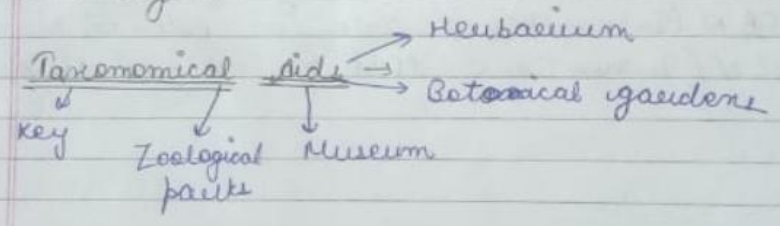 Herbarium
Taxonomical Aids → Botanical gardens
Key
Zoological Museum
parks